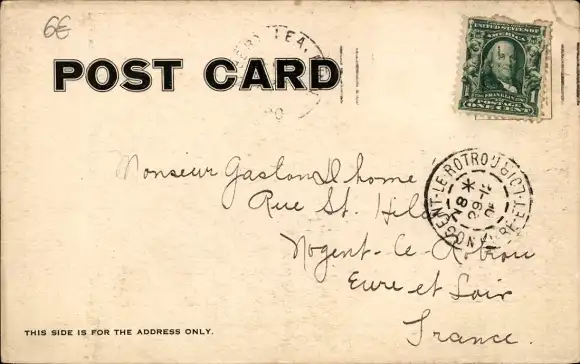 6€
POST CARD
UNITED STATES OF
AMERICA
FRANKLIN
POSTAGE
ONE CENT
Monsieur Gaston Dhome
Rue St. Hil
Nogent-le-Rotrou
Eure et Loir
France.
NOGENT-LE-ROTROU
EURE-ET-LOIR
8
29-12
THIS SIDE IS FOR THE ADDRESS ONLY.